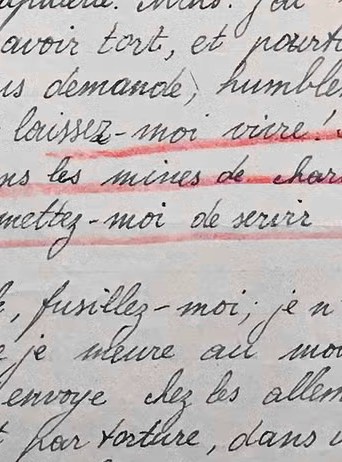 avoir tort, et pourt
us demande, humble
laissez-moi vivre!
ns les mines de char
mettez-moi de servir
, fusillez-moi; je n'
je meure au moi
envoye chez les allem
par torture, dans u